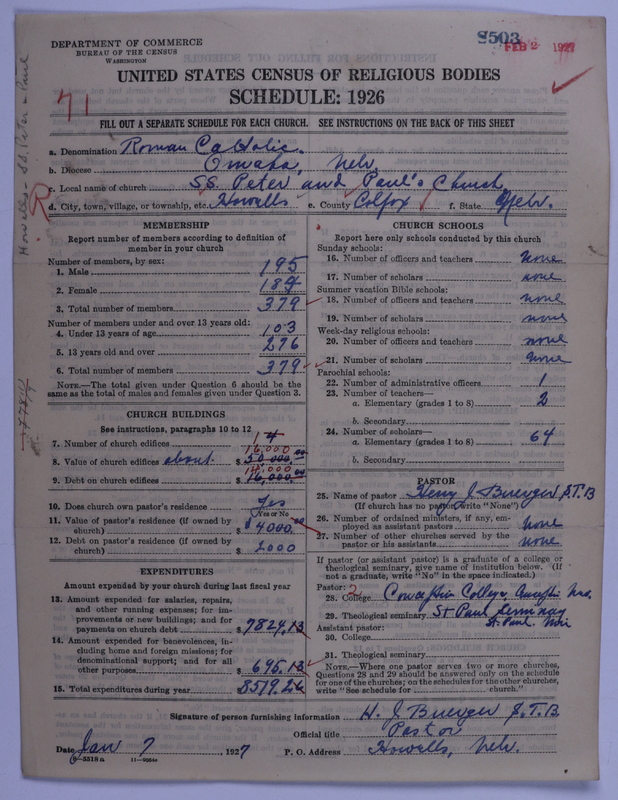 DEPARTMENT OF COMMERCE
BUREAU OF THE CENSUS
WASHINGTON
8503
FEB 2 1927
UNITED STATES CENSUS OF RELIGIOUS BODIES
SCHEDULE: 1926
71
FILL OUT A SEPARATE SCHEDULE FOR EACH CHURCH. SEE INSTRUCTIONS ON THE BACK OF THIS SHEET
Howells - SS. Peter & Paul
a. Denomination Roman Catholic.
b. Diocese Omaha, Nebr.
c. Local name of church SS. Peter and Paul's Church
R
d. City, town, village, or township, etc. Howells e. County Colfax f. State Nebr.
MEMBERSHIP
Report number of members according to definition of
member in your church
Number of members, by sex:
1. Male 195
2. Female 184
3. Total number of members 379
Number of members under and over 13 years old:
4. Under 13 years of age 103
5. 13 years old and over 276
6. Total number of members 379
NOTE.—The total given under Question 6 should be the
same as the total of males and females given under Question 3.
CHURCH BUILDINGS
See instructions, paragraphs 10 to 12
7. Number of church edifices 1
8. Value of church edifices about $ 50,000.00
9. Debt on church edifices $ 16,000.00
10. Does church own pastor's residence? Yes
Yes or No
11. Value of pastor's residence (if owned by
church) $ 4000.00
12. Debt on pastor's residence (if owned by
church) $ 2000
EXPENDITURES
Amount expended by your church during last fiscal year
13. Amount expended for salaries, repairs,
and other running expenses; for im-
provements or new buildings; and for
payments on church debt $ 7824.13
14. Amount expended for benevolences, in-
cluding home and foreign missions; for
denominational support; and for all
other purposes $ 695.13
15. Total expenditures during year 8519.26
CHURCH SCHOOLS
Report here only schools conducted by this church
Sunday schools:
16. Number of officers and teachers none
17. Number of scholars none
Summer vacation Bible schools:
18. Number of officers and teachers none
19. Number of scholars none
Week-day religious schools:
20. Number of officers and teachers none
21. Number of scholars None
Parochial schools:
22. Number of administrative officers 1
23. Number of teachers—
a. Elementary (grades 1 to 8) 2
b. Secondary
24. Number of scholars—
a. Elementary (grades 1 to 8) 64
b. Secondary
PASTOR
25. Name of pastor Henry J. Buerger S.T.B
(If church has no pastor, write "None")
26. Number of ordained ministers, if any, em-
ployed as assistant pastors none
27. Number of other churches served by the
pastor or his assistants none
If pastor (or assistant pastor) is a graduate of a college or
theological seminary, give name of institution below. (If
not a graduate, write "No" in the space indicated.)
Pastor: 2
28. College Conception College, Mo.
29. Theological seminary St Paul Seminary
St. Paul.
Assistant pastor:
30. College
31. Theological seminary
NOTE.—Where one pastor serves two or more churches,
Questions 28 and 29 should be answered only on the schedule
for one of the churches; on the schedules for the other churches,
write "See schedule for church."
Signature of person furnishing information H. J. Buerger S.T.B.
Official title Pastor
Date Jan 7, 1927 P. O. Address Howells, Nebr.
6—5318 a